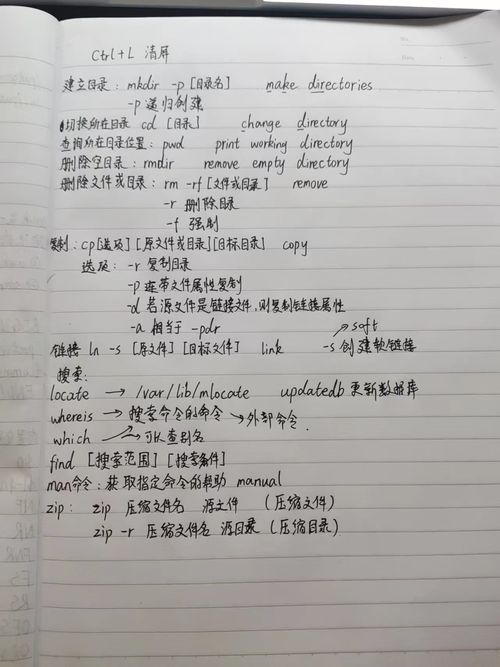 Ctrl+L 清屏
建立目录：mkdir -p [目录名] make directories
-p 递归创建
切换所在目录 cd [目录] change directory
查询所在目录位置：pwd print working directory
删除空目录：rmdir remove empty directory
删除文件或目录：rm -rf [文件或目录] remove
-r 删除目录
-f 强制
复制：cp[选项] [原文件或目录][目标目录] copy
选项：-r 复制目录
-p 连带文件属性复制
-d 若源文件是链接文件,则复制链接属性
-a 相当于 -pdr
soft
链接 ln -s [原文件] [目标文件] link -s 创建软链接
搜索：
locate → /var/lib/mlocate updatedb 更新数据库
whereis → 搜索命令的命令 → 外部命令.
which → 可以查别名
find [搜索范围] [搜索条件]
man命令：获取指定命令的帮助 manual
zip： zip 压缩文件名 源文件 （压缩文件）
zip -r 压缩文件名 源目录（压缩目录）